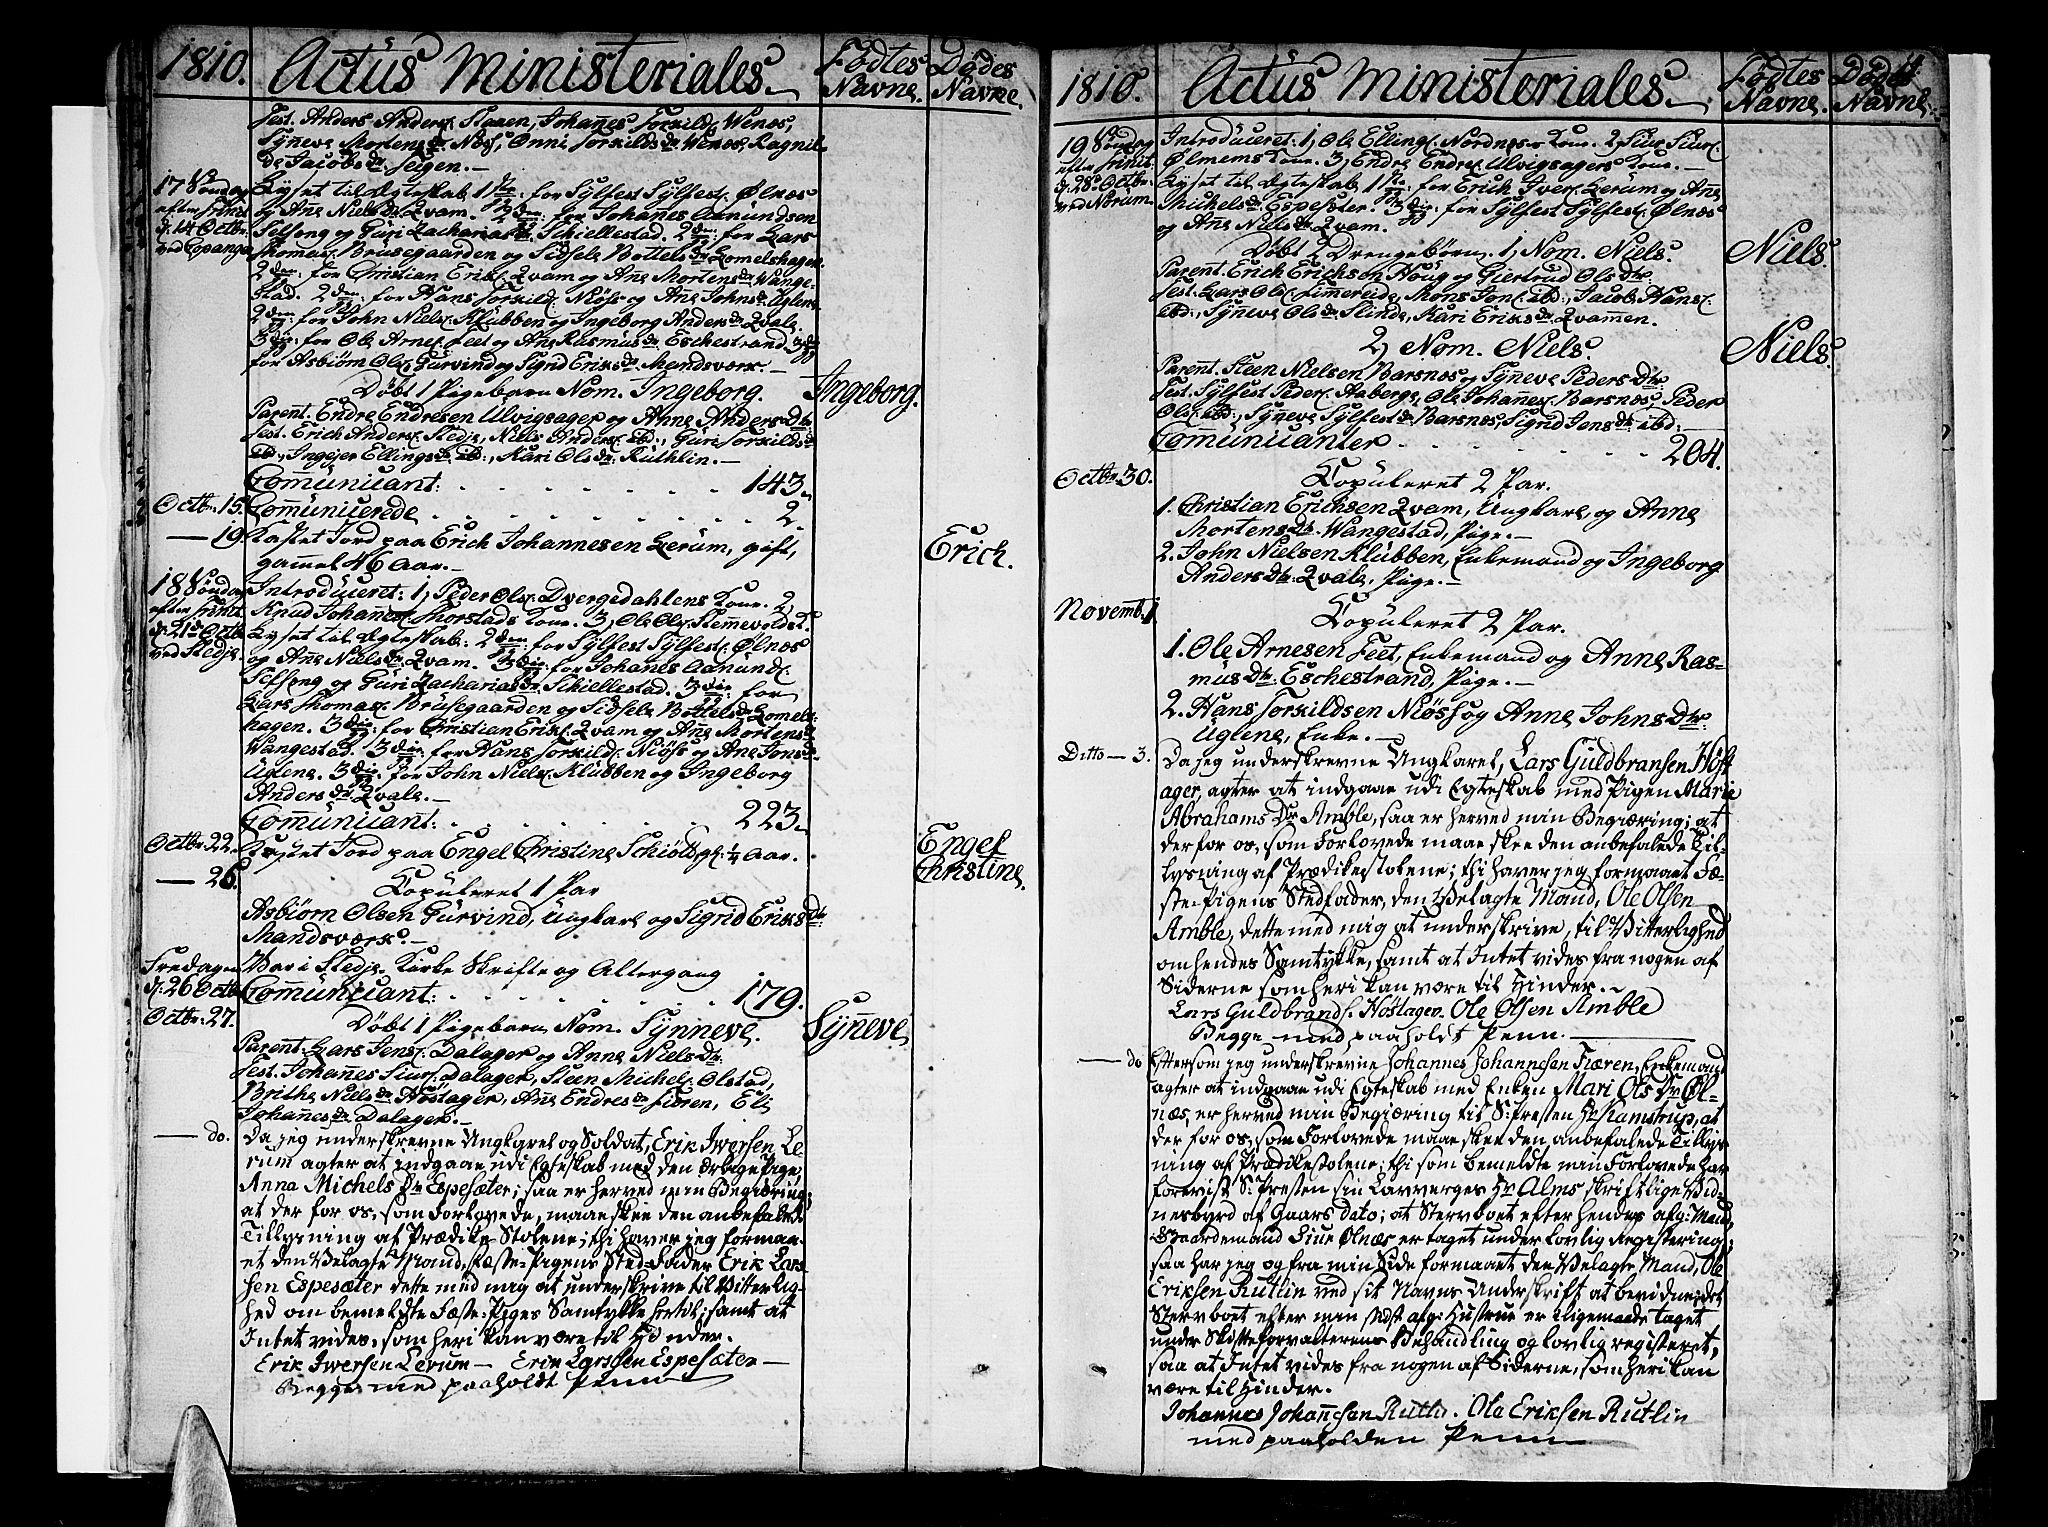 1810. Actus Ministeriales. Fødtes Navne. Dødes Navne.
Test. Anders Anders: Steen, Johanes Torkilds: Wenes,
Synneve Mortens Dr. Næs, Onni Torkilds Dr. Wenes, Ragnil-
de Jacobs Dr. Seigen.
17 Søndag efter Trinit. d. 14 Octbr. ved Copanger
Lyset til Ægteskab 1ste: for Sylfest Sylfests: Ølnæs
og Ane Niels Dr. Qvam. 2den: for Johanes Amundsen
Selseng og Guri Zacharias Dr. Schiellestad. 2den: for Lars
Thomas: Brusegaarden og Sidsele Bottels Dr. Lomelshagen.
2den: for Christian Eriks: Qvam og Ane Mortens Dr. Wange-
stad. 2den: for Hans Torkild: Niøss og Ane Johns Dr. Uglene.
2den: for John Niels: Klubben og Ingeborg Anders Dr. Qvale.
3die: for Ole Arnes: Feet og Ane Rasmus Dr. Eschestrand. 3die
for Asbiørn Ols: Gurvind og Sigrid Eriks Dr. Mandsværk.
Døbt 1 Pigebarn Nom. Ingeborg. Ingeborg.
Parent. Endre Endresen Ulvigsager og Anne Anders Dtr.
Test. Erich Anders: Stedje, Niels Anders: ibd:, Guri Torkilds Dr.
ibd:, Ingejer Ellings Dr. ibd:, Kari Ols Dr. Ruthlin.
Comunicant: 143.
Octbr. 15. Comunicerede 2.
— 19 Kastet Jord paa Erich Johannesen Lerum, gift, Erich.
gammel 46 Aar.
18 Søndag efter Trinit. d. 21de Octb. ved Stedje.
Introduceret: 1, Peder Ols: Dvergedahlens Kone. 2,
Knud Johanes: Thorstads Kone. 3, Ole Ols: Stemevolds K.
Lyset til Ægteskab: 2den: for Sylfest Sylfest: Ølnæs
og Ane Niels Dr. Qvam. 3die: for Johanes Amund:
Selseng og Guri Zacharias Dr. Schiellestad. 3die: for
Lars Thomas: Brusegaarden og Sidsele Bottels Dr. Lomels-
hagen. 3die: for Christian Erik: Qvam og Ane Mortens Dr.
Wangestad. 3die: for Hans Torkild: Niøss og Ane Jons Dr.
Uglene. 3die: for John Niels: Klubben og Ingeborg
Anders Dr. Qvale.
Comunicant: 223.
Octbr. 22. Kastet Jord paa Engel Christine Schiøtt, gl. 1/4 Aar. Engel Christine.
— 26. Copuleret 1 Par
Asbiørn Olsen Gurvind, Ungkarl og Sigrid Eriks Dtr.
Mandsværk.
Fredagen d. 26 Octb. Var i Stedje Kirke Skrifte og Altergang
Comunicant: 179.
Octbr. 27. Døbt 1 Pigebarn Nom. Synneve. Synneve
Parent. Lars Jens: Dalager og Anne Niels Dtr.
Test. Johanes Siur: Dalager, Steen Michels: Olstad,
Brithe Niels Dr. Høstager, Ane Endres Dr. Fieren, Eli
Johanes Dr. Dalager.
— do. Da jeg underskrevne Ungkarl og Soldat, Erik Iwersen Le-
rum agter at indgaae udi Egteskab med den ærlige Pige,
Anna Michels Dr. Espesæter; saa er herved min Begiæring;
at der for os, som Forlovede, maae skee den anbefalede
Tillysning af Prædike Stolene; thi haver jeg formaa-
et den Velagte Mand, Fæste-Pigens Sted-Fader Erik Lars-
sen Espesæter dette med mig at underskrive til Vitterlig-
hed om bemeldte Fæste-Piges Samtykke hertil; samt at
Intet vides, som heri kan være til Hinder.
Erik Iwersen Lerum — Erik Larssen Espesæter —
Begge med paaholdt Penn
1810. Actus Ministeriales. Fødtes Navne. Dødes Navne.
19 Søndag efter Trinit. d. 28de Octbr. ved Norum.
Introduceret: 1, Ole Elling: Nordnes Kone. 2, Siur Siur:
Ølmems Kone. 3, Endre Endres: Ulvigsagers Kone.
Lyset til Ægteskab, 1ste: for Erich Ivers: Lerum og Ane
Michels Dr. Espeseter. 3die: for Sylfest Sylfest: Ølnæs
og Ane Niels Dr. Qvam.
Døbt 2 Drengebørn. 1, Nom. Niels. Niels.
Parent. Erich Erichson Houg og Giertrud Ols Dtr.
Test. Lars Ols: Fimereide, Mons Jon: ibd:, Jacob Hans:
ibd:, Synneve Ols Dr. Slinde, Kari Eriks Dr. Qvammen.
2, Nom. Niels. Niels.
Parent. Steen Nielsen Barsnes og Synneve Peders Dtr.
Test. Sylfest Peder: Aaberge, Ole Johanes: Barsnes, Peder
Ols: ibd:, Synneve Sylfest Dr. Barsnes, Sigrid Jens Dr. ibd:
Communicanter 204.
Octbr. 30. Copuleret 2 Par.
1. Christian Erichsen Qvam, Ungkarl, og Anne
Mortens Dtr. Wangestad, Pige.
2. John Nielsen Klubben, Enkemand og Ingeborg
Anders Dtr. Qvale, Pige.
Novemb. 1. Copuleret 2 Par.
1. Ole Arnesen Feet, Enkemand og Anne Ras-
mus Dtr. Eschestrand, Pige.
2. Hans Torkildsen Niøss og Anne Johns Dtr.
Uglene, Enke.
Ditto — 3. Da jeg underskrevne Ungkarl, Lars Guldbransen Høst-
ager, agter at indgaae udi Egteskab med Pigen Marie
Abrahams Dr. Amble, saa er herved min Begiæring; at
der for os, som Forlovede maae skee den anbefalede Til-
lysning af Prædikestolene; thi haver jeg formaaet Fæ-
ste-Pigens Stedfader, den Velagte Mand, Ole Olsen
Amble, dette med mig at underskrive, til Vitterlighed
om hendes Samtykke, samt at Intet vides fra nogen af
Siderne som heri kan være til Hinder.
Lars Guldbrands. Høstager. Ole Olsen Amble
Begge med paaholdt Penn.
— do Eftersom jeg underskrevne Johannes Johannesen Fiæren, Enkemand
agter at indgaae udi Egteskab med Enken Mari Ols Dr. Øl-
næs, er herved min Begiæring til S: Presten Hr. Kamstrup, at
der for os, som Forlovede maae skee den anbefalede Tillys-
ning af Prædikestolene; thi som bemeldte min Forlovede har
forevist S: Presten sin Lavverges Hr. Alms skriftlige Vid-
nesbyrd af Gaars dato; at Stervboet efter hendes afg: Mand,
Gaardemand Siur Ølnæs er taget under lovlig Registering;
saa har jeg og fra min Side formaaet den Velagte Mand, Ole
Eriksen Rutlin ved sit Navns Underskrift at bevidne; det
Stervboet efter min sidst afg: Hustrue er ligemaade taget
under Skifteforvalterens Behandling og lovlig registeret,
saa at Intet vides fra nogen af Siderne, som heri kan
være til Hinder.
Johannes Johannesen Rutlin. Ola Eriksen Rutlin
med paaholden Penn